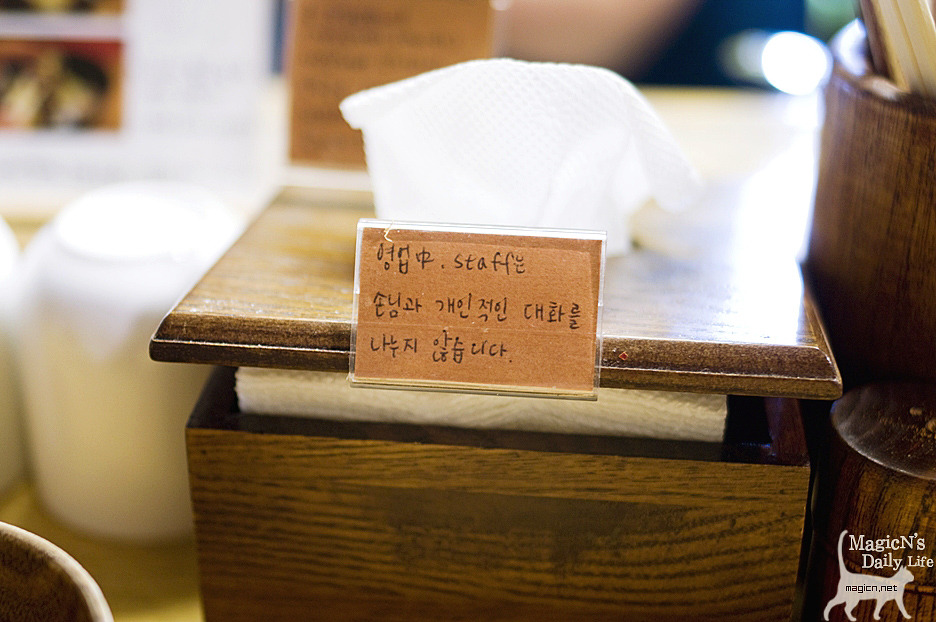 영업中. staff는
손님과 개인적인 대화를
나누지 않습니다.
MagicN's
Daily Life
magicn.net